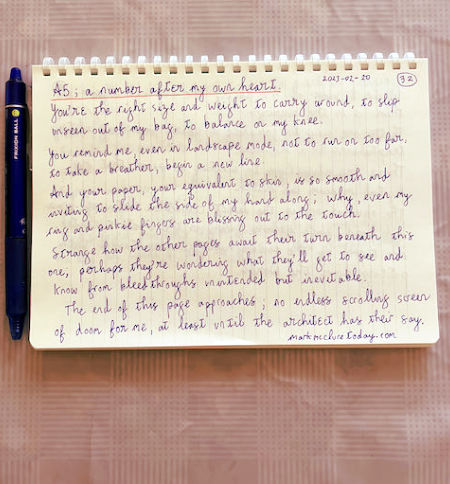 A5; a number after my own heart.
2023-02-20
32
You're the right size and weight to carry around, to slip
unseen out of my bag, to balance on my knee.
You remind me, even in landscape mode, not to run on too far,
to take a breather, begin a new line.
And your paper, your equivalent to skin, is so smooth and
inviting to slide the side of my hand along; why, even my
ring and pinkie fingers are blissing out to the touch.
Strange how the other pages await their turn beneath this
one, perhaps they're wondering what they'll get to see and
know from bleedthroughs unintended but inevitable.
The end of this page approaches; no endless scrolling screen
of doom for me, at least until the architect has their say.
markmcclure today.com
FRIXION BALL